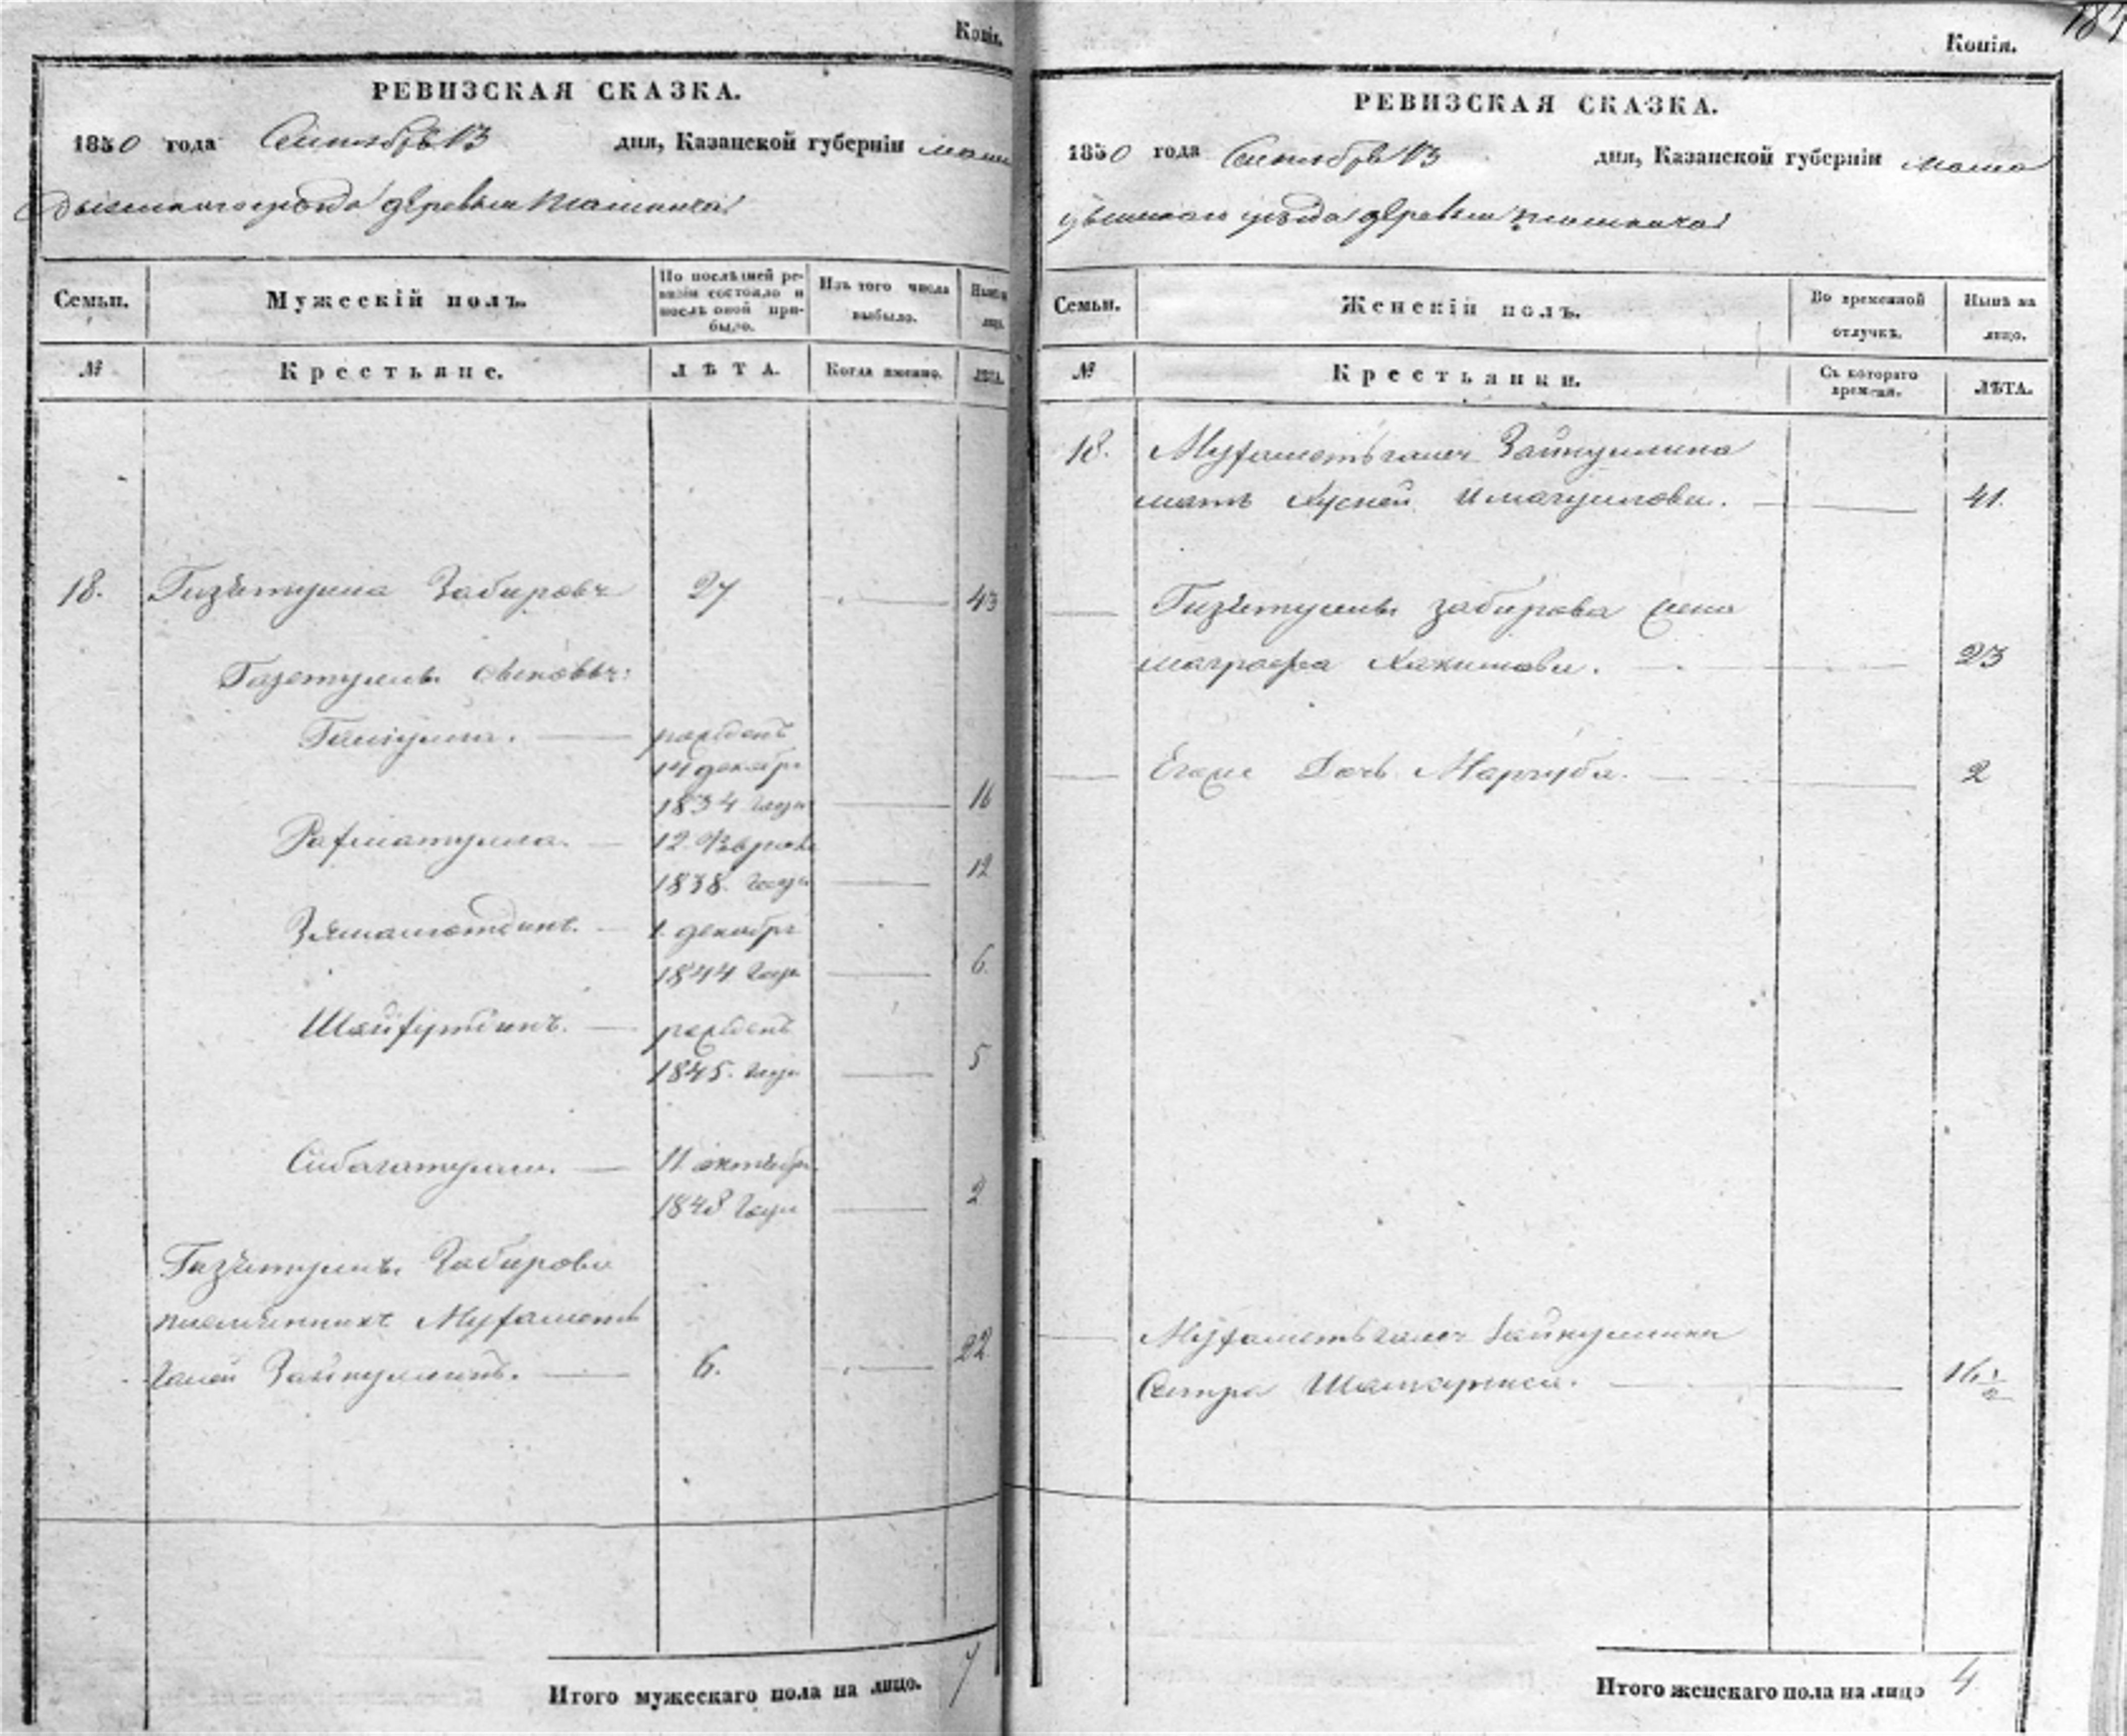 Копія.
РЕВИЗСКАЯ СКАЗКА.
1850 года Сентября 13 дня, Казанской губерніи мама
дышскаго уѣзда деревни
Семьи.
Мужескій полъ.
По послѣдней ре-
визіи состояло и
послѣ оной при-
было.
Изъ того числа
выбыло.
Нынѣ на
лицо.
№
Крестьяне.
ЛѢТА.
Когда именно.
ЛѢТА.
18. Гизѣтулла Забировъ 27 43
Газетуллы сыновья:
рожденъ
14 декабря
1834 года 16
Рафматулла. 12 Февраля
1838. года 12
1. декабря
1844 года 6
Шайфутдинъ. рожденъ
1845. года 5
Сибагатулла. 11 октября
1848 года 2
Газѣтуллы Забирова
племянникъ Муфаметь
галей Зайнуллинъ. 6. 22
Итого мужескаго пола на лицо. 7
184
Копія.
РЕВИЗСКАЯ СКАЗКА.
1850 года Сентября 13 дня, Казанской губерніи мама
дышскаго уѣзда деревни
Семьи.
Женскій полъ.
Во временной
отлучкѣ.
Нынѣ на
лицо.
№
Крестьянки.
Съ котораго
времени.
ЛѢТА.
18. Муфаметьгалея Зайнуллина
мать 41.
Гизѣтуллы Забирова жена
Хакимова. 23
Егоже дочь Маргуба. 2
Муфаметьгалея Зайнуллина
Сестра 16 1/2
Итого женскаго пола на лицо 4